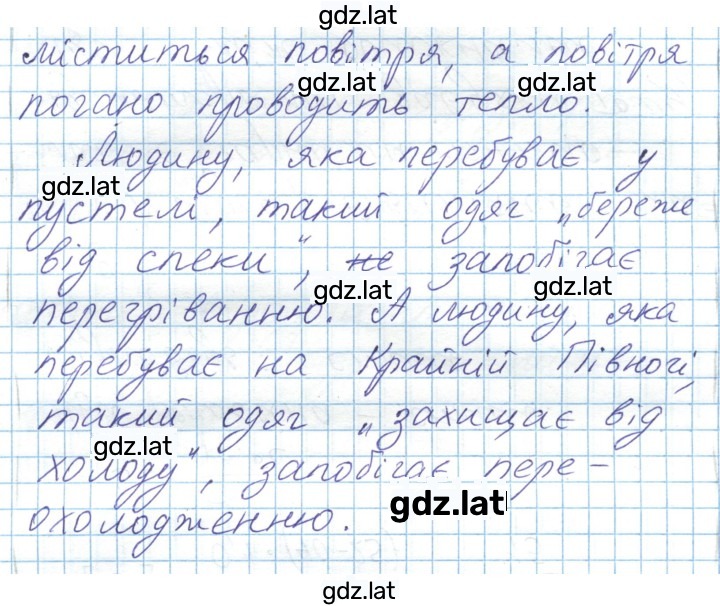 gdz.lat
міститься повітря, а повітря
gdz.lat gdz.lat
погано проводить тепло.
Людину, яка перебуває у
gdz.lat gdz.lat
пустелі, такий одяг „береже
від спеки“, не запобігає
gdz.lat gdz.lat
перегріванню. А людину, яка
перебуває на Крайній Півночі,
такий одяг „захищає від
gdz.lat
холоду“, запобігає пере-
gdz.lat
охолодженню.
gdz.lat